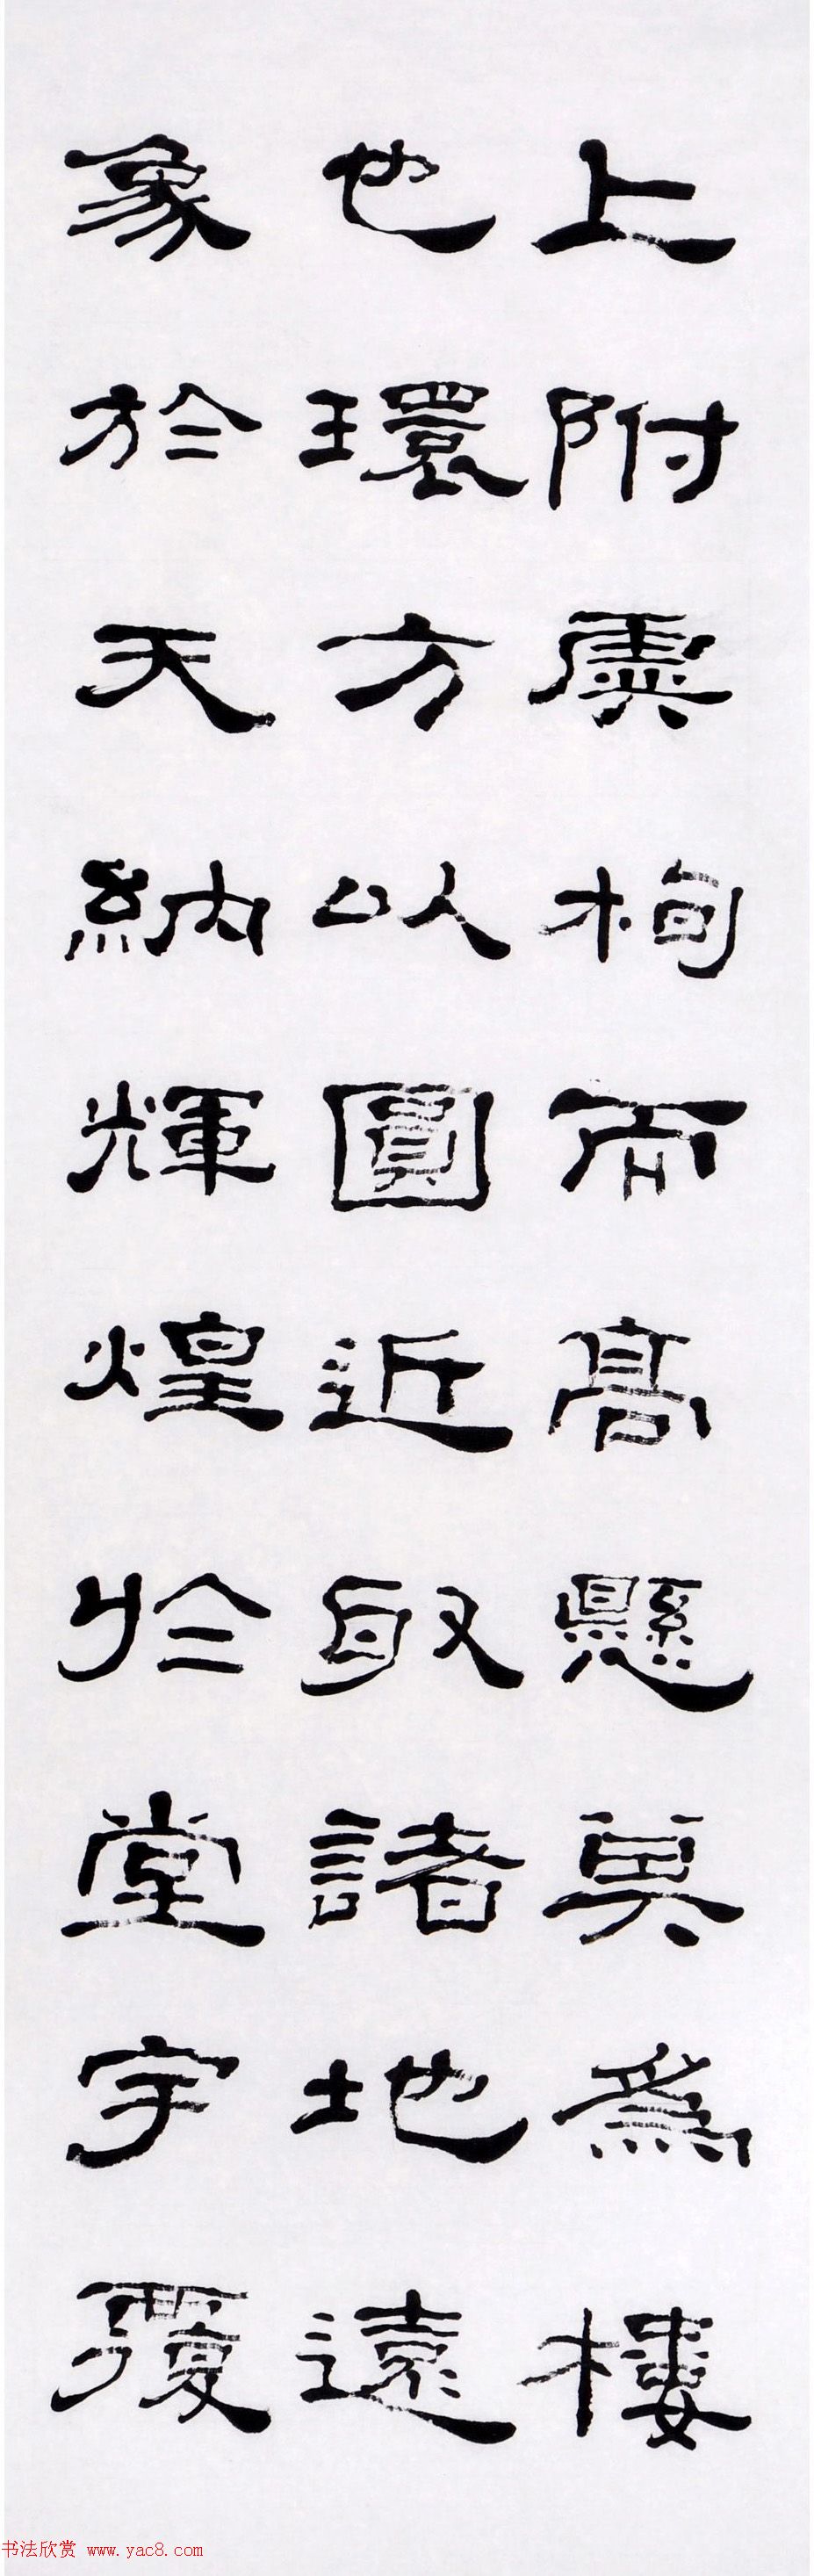 上附虡栒而高懸莫為樓
也環方以圓近取諸地遠
象於天納輝煌於堂宇覆
书法欣赏 www.yac8.com